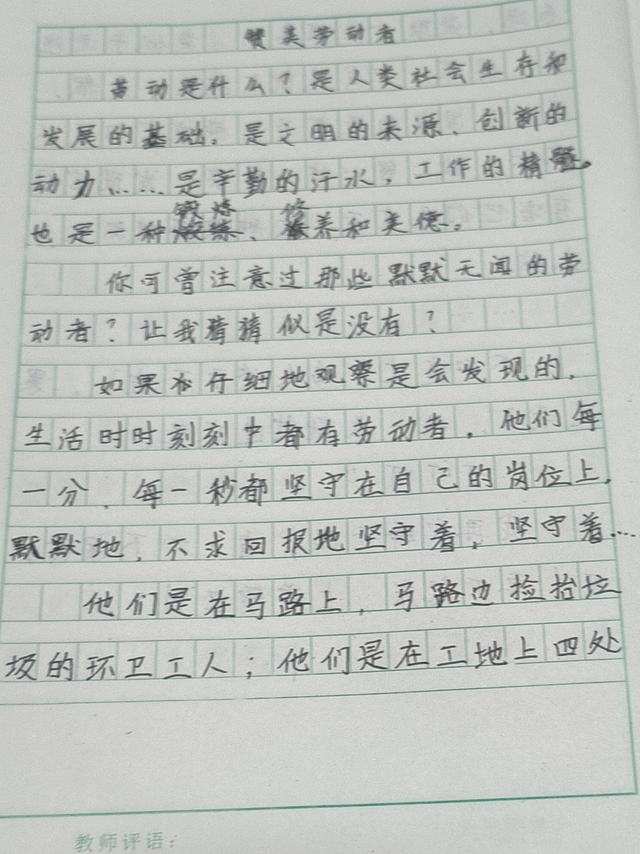 赞美劳动者
劳动是什么？是人类社会生存和
发展的基础，是文明的来源、创新的
动力……是辛勤的汗水，工作的精髓。
也是一种锻炼、修养和美德。
你可曾注意过那些默默无闻的劳
动者？让我猜猜似是没有？
如果你仔细地观察是会发现的，
生活时时刻刻中都有劳动者，他们每
一分、每一秒都坚守在自己的岗位上，
默默地，不求回报地坚守着，坚守着…
他们是在马路上，马路边捡拾垃
圾的环卫工人；他们是在工地上四处
教师评语：